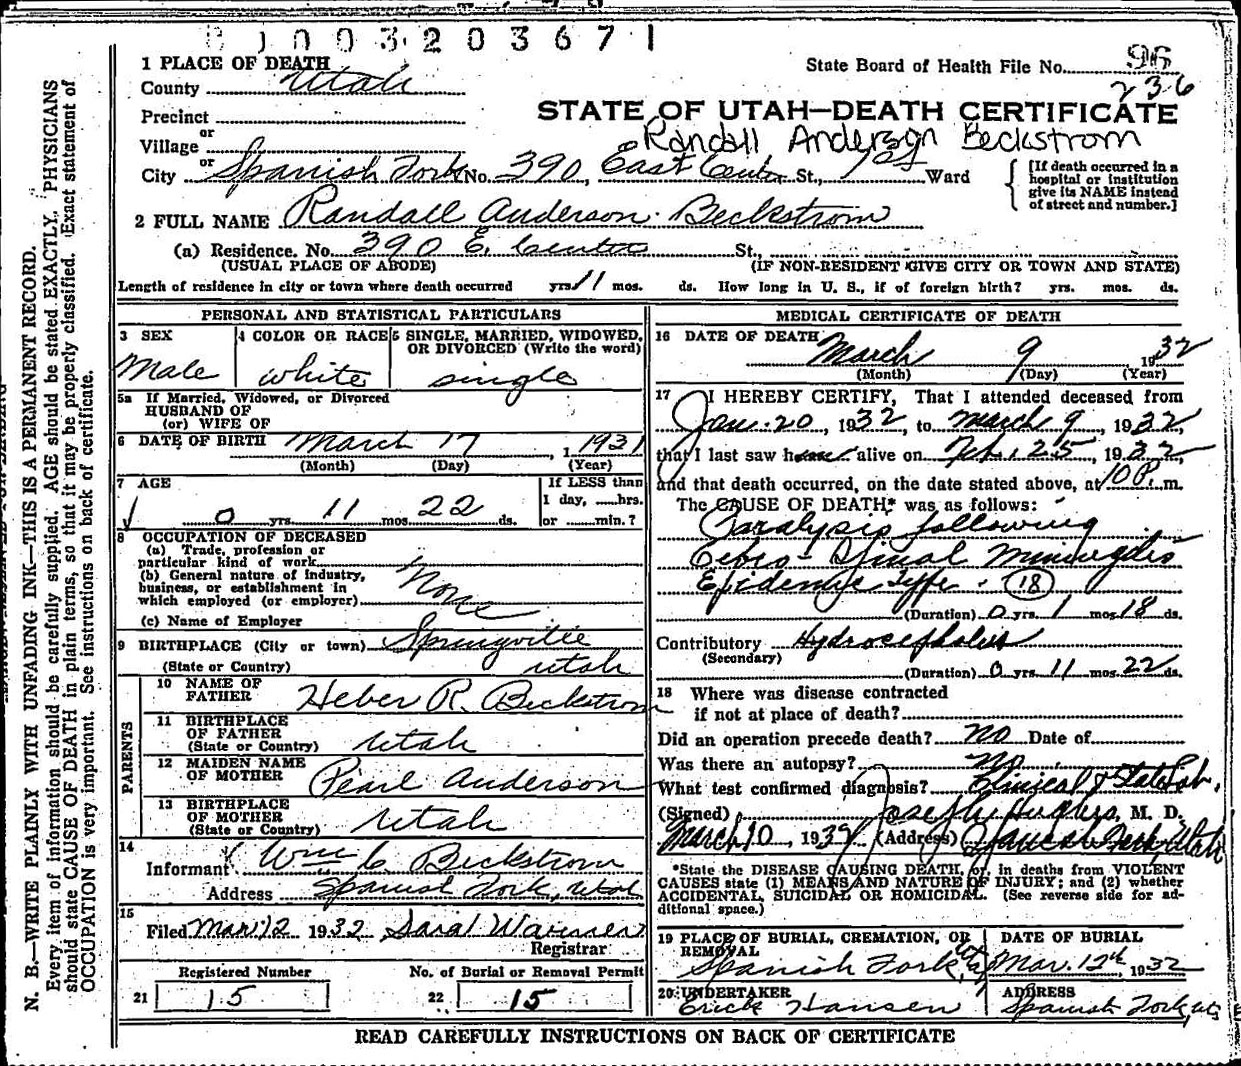 1003203671
1 PLACE OF DEATH
State Board of Health File No. 96
County Utah
236
STATE OF UTAH—DEATH CERTIFICATE
Precinct
or
Randall Anderson Beckstrom
Village
or
City Spanish Fork No. 390, East Center St., 1st Ward
[If death occurred in a hospital or institution give its NAME instead of street and number.]
2 FULL NAME Randall Anderson Beckstrom
(a) Residence. No. 390 E. Center St.,
(USUAL PLACE OF ABODE) (IF NON-RESIDENT GIVE CITY OR TOWN AND STATE)
Length of residence in city or town where death occurred yrs. 11 mos. ds. How long in U. S., if of foreign birth? yrs. mos. ds.
PERSONAL AND STATISTICAL PARTICULARS
3 SEX 4 COLOR OR RACE 5 SINGLE, MARRIED, WIDOWED, OR DIVORCED (Write the word)
Male white single
5a If Married, Widowed, or Divorced
HUSBAND OF
(or) WIFE OF
6 DATE OF BIRTH March 17, 1931
(Month) (Day) (Year)
7 AGE
If LESS than
1 day, ___hrs.
0 yrs. 11 mos. 22 ds. or ___min.?
8 OCCUPATION OF DECEASED
(a) Trade, profession or
particular kind of work
(b) General nature of industry,
business, or establishment in
which employed (or employer) None
(c) Name of Employer
9 BIRTHPLACE (City or town) Springville
(State or Country) Utah
PARENTS
10 NAME OF FATHER Heber R. Beckstrom
11 BIRTHPLACE OF FATHER (State or Country) Utah
12 MAIDEN NAME OF MOTHER Pearl Anderson
13 BIRTHPLACE OF MOTHER (State or Country) Utah
14
Informant Wm C. Beckstrom
Address Spanish Fork, Utah
15
Filed Mar 12 1932 Sara Warner
Registrar
Registered Number No. of Burial or Removal Permit
21 15 22 15
MEDICAL CERTIFICATE OF DEATH
16 DATE OF DEATH March 9 1932
(Month) (Day) (Year)
17 I HEREBY CERTIFY, That I attended deceased from
Jan. 20, 1932, to March 9, 1932,
that I last saw h alive on Feb. 25, 1932,
and that death occurred, on the date stated above, at 10 P. m.
The CAUSE OF DEATH* was as follows:
Paralysis following
Cebro-Spinal Miningitis
Epidemic Type. (18)
(Duration) 0 yrs. 1 mos. 18 ds.
Contributory Hydrocephalus
(Secondary)
(Duration) 0 yrs. 11 mos. 22 ds.
18 Where was disease contracted
if not at place of death?
Did an operation precede death? no Date of
Was there an autopsy? No
What test confirmed diagnosis? Clinical & State Lab.
(Signed) Joseph Hughes, M. D.
March 10, 193 (Address) Spanish Fork, Utah
*State the DISEASE CAUSING DEATH, or, in deaths from VIOLENT
CAUSES state (1) MEANS AND NATURE OF INJURY; and (2) whether
ACCIDENTAL, SUICIDAL OR HOMICIDAL. (See reverse side for ad-
ditional space.)
19 PLACE OF BURIAL, CREMATION, OR REMOVAL DATE OF BURIAL
Spanish Fork, Utah Mar. 12th, 1932
20 UNDERTAKER ADDRESS
Erick Hansen Spanish Fork, Ut
READ CAREFULLY INSTRUCTIONS ON BACK OF CERTIFICATE
N. B.—WRITE PLAINLY WITH UNFADING INK—THIS IS A PERMANENT RECORD.
Every item of information should be carefully supplied. AGE should be stated EXACTLY. PHYSICIANS
should state CAUSE OF DEATH in plain terms, so that it may be properly classified. Exact statement of
OCCUPATION is very important. See instructions on back of certificate.